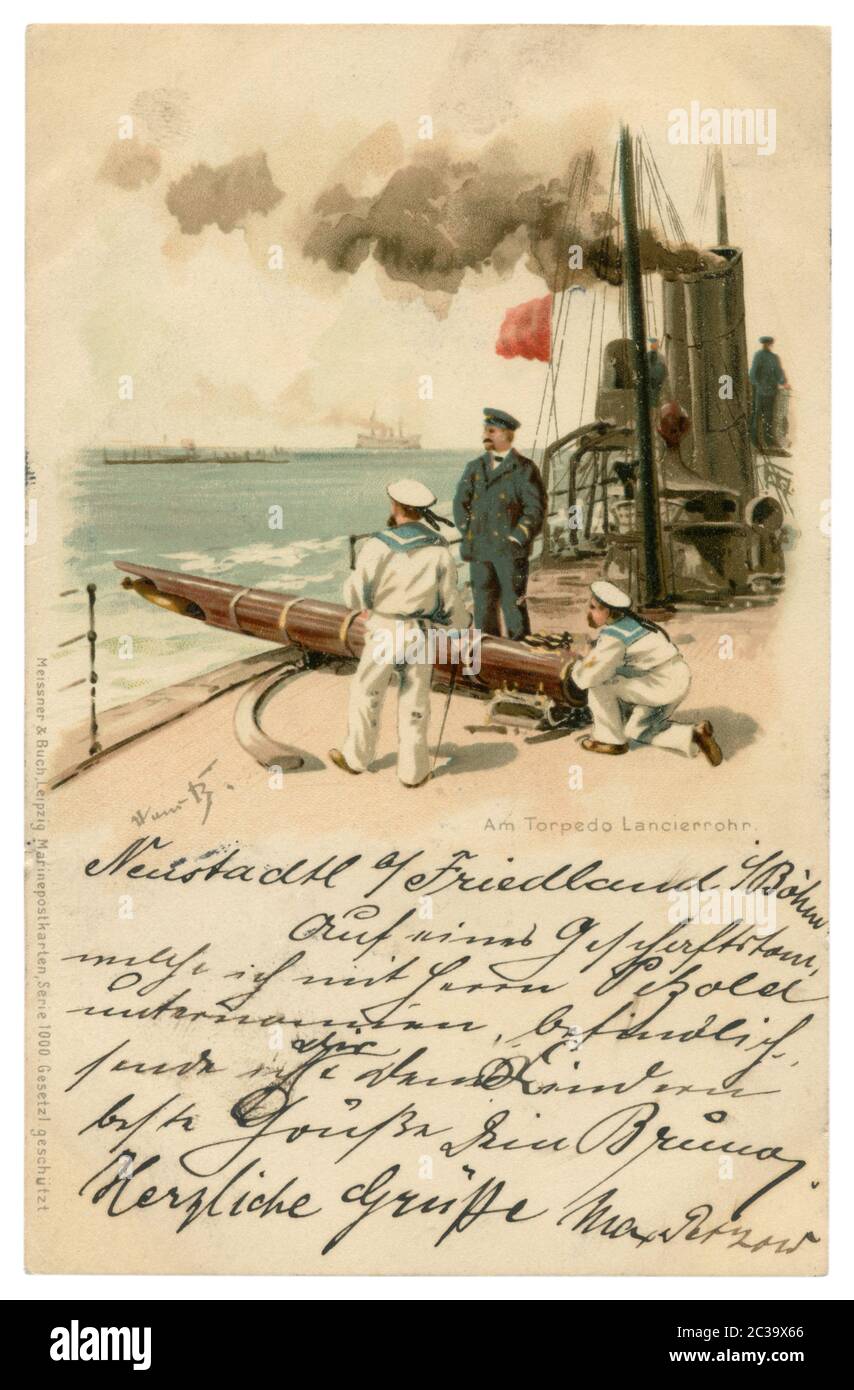 Am Torpedo Lancierrohr.
Neustadtl a/ Friedland i/Böhm.
Auf einer Geschäftstour,
welche ich mit Herrn
unternommen, befindlich,
sende ich Dir u. den Kindern
beste Grüße Dein Bruno.
Herzliche Grüße Max
Meissner & Buch, Leipzig Marinepostkarten, Serie 1000 Gesetzl geschützt
alamy
Image ID: 2C39X66
www.alamy.com